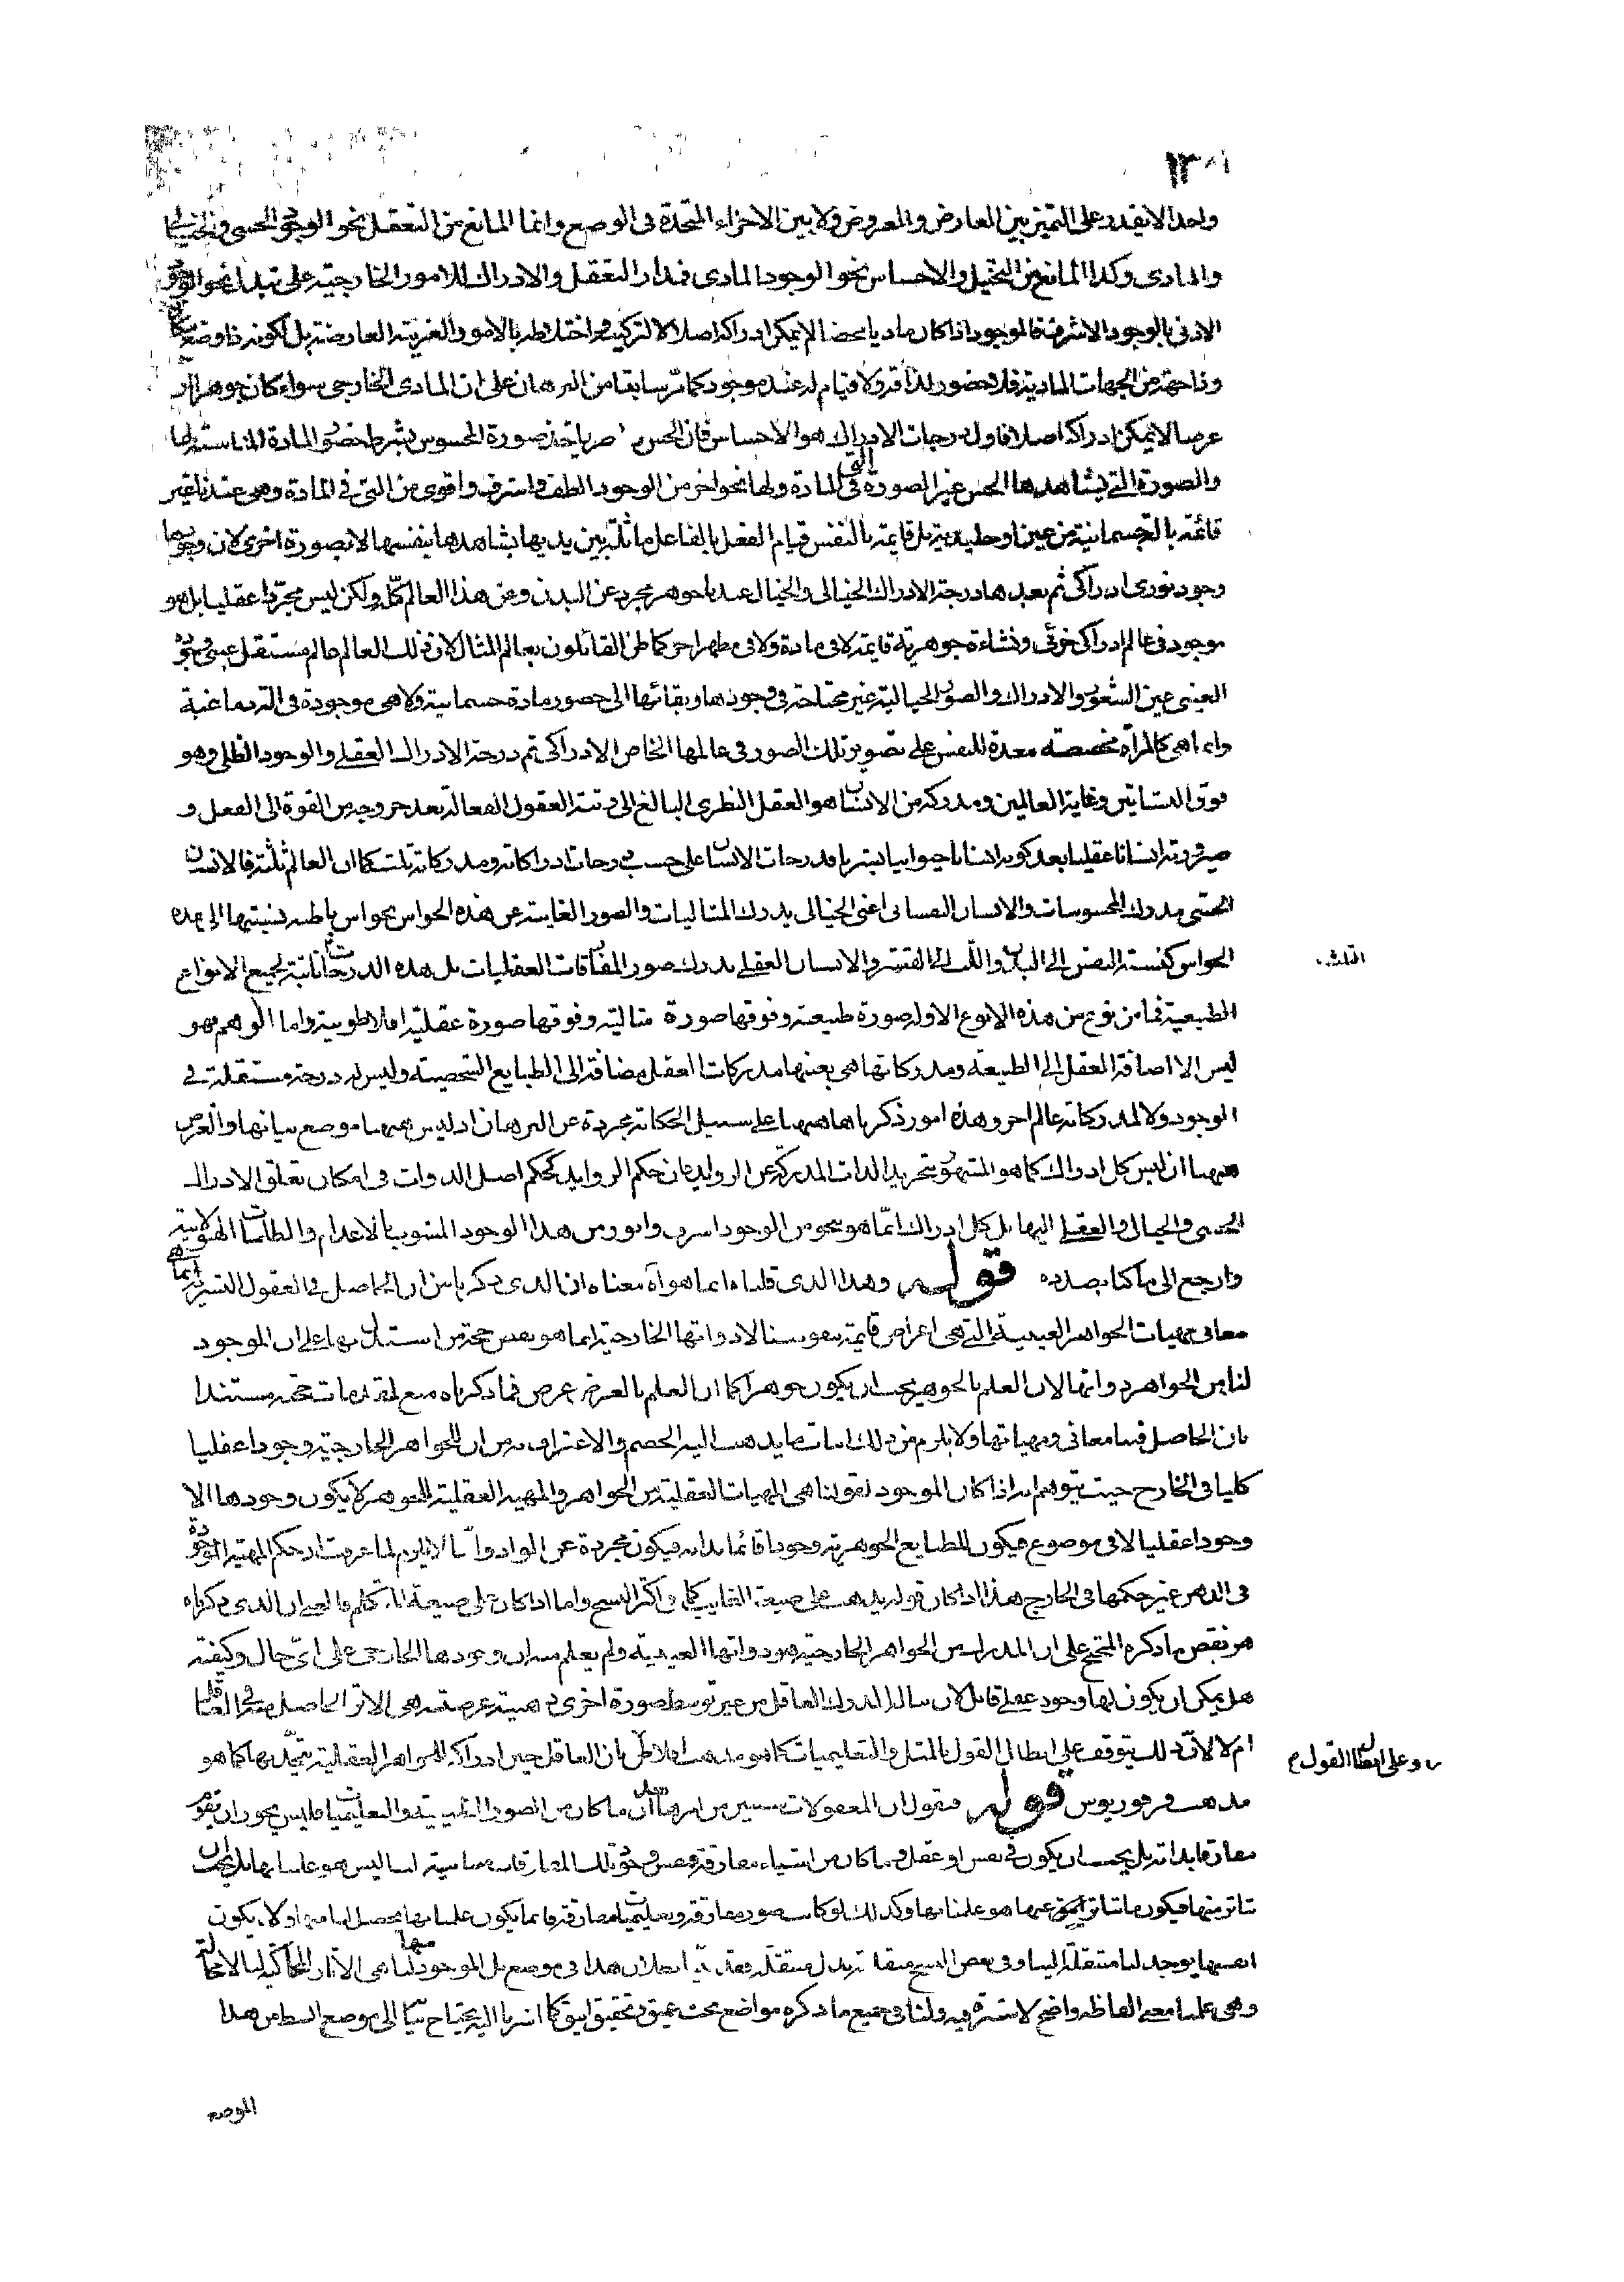 ١٣٨
واحدا لا يقدر على التميز بين العارض والمعروض ولا بين الاجزاء المتحدة فى الوضع وانما المانع من التعقل نحو الوجود الحسى والخيالى
والمادى وكذا المانع من التخيل والاحساس نحو الوجود المادى فمدار التعقل والادراك للامور الخارجية على تبدل نحو الوجود
الادنى بالوجود الاشرف فالموجود اذا كان ماديا محضا لا يمكن ادراكه اصلا لا لتركيبه واختلاطه بالامور الغريبة العارضة بل لكونه ذا وضع
وذا جهة من الجهات المادية فلا حضور لذاته ولا قيام له عند موجود كما مر سابقا من البرهان على ان المادى الخارجى سواء كان جوهرا او
عرضا لا يمكن ادراكه اصلا فاول درجات الادراك هو الاحساس فان الحس ياخذ صورة المحسوس بشرط حضور المادة المناسبة لها
والصورة التى يشاهدها الحس غير الصورة التى فى المادة ولها نحو اخر من الوجود الطف واشرف واقوى من التى فى المادة وهى عندنا غير
قائمة بالة جسمانية من عين او جليدية بل قايمة بالنفس قيام الفعل بالفاعل ماثلة بين يديها يشاهدها بنفسها لا بصورة اخرى لان وجودها
وجود نورى ادراكى ثم بعدها درجة الادراك الخيالى والخيال عندنا جوهر مجرد عن البدن وعن هذا العالم كله ولكن ليس مجردا عقليا بل هو
موجود فى عالم ادراكى جزئى ونشاءة جوهرية قايمة لا فى مادة ولا فى مظهر اخر كما ظن القائلون بعالم المثال لان ذلك العالم عالم مستقل عينى وجوده
العينى عين الشعور والادراك والصور الخيالية غير محتاجة فى وجودها وبقائها الى حضور مادة جسمانية ولا هى موجودة فى القوة الدماغية
وانما هى كالمرآة مخصصة معدة للنفس على تصوير تلك الصور فى عالمها الخاص الادراكى ثم درجة الادراك العقلى والوجود الظلى وهو
فوق النشاتين وغاية العالمين ومدركه من الانسان هو العقل النظرى البالغ الى رتبة العقول الفعالة بعد خروجه من القوة الى الفعل و
صيرورته انسانا عقليا بعد كونه انسانا حيوانيا بشريا فدرجات الانسان على حسب درجات ادراكاته ومدركاته ثلث كما ان العالم ثلثة فالانسان
الحسى مدرك المحسوسات والانسان النفسانى اعنى الخيالى يدرك المثاليات والصور الغايبة عن هذه الحواس بحواس باطنه نسبتها الى هذه
الحواس كنسبة النفس الى البدن واللب الى القشر والانسان العقلى يدرك صور المفارقات العقليات بل هذه الدرجات الثلث ثابتة لجميع الانواع
الثلث
الطبيعية فما من نوع من هذه الانوع الا وله صورة طبيعية وفوقها صورة مثالية وفوقها صورة عقلية افلاطونية واما الوهم فهو
ليس الا اضافة العقل الى الطبيعة ومدركاتها هى بعينها مدركات العقل مضافة الى الطبايع الشخصية وليس له درجة مستقلة فى
الوجود ولا لمدركاته عالم اخر وهذه امور ذكرناها ههنا على سبيل الحكاية مجردة عن البرهان اذ ليس ههنا موضع بيانها والغرض
ههنا ان ليس كل ادراك كما هو المشهور بتجريد الذات المدركة عن الزوايد فان حكم الزوايد كحكم اصل الذوات فى امكان تعلق الادراك
الحسى والخيالى والعقلى اليها بل كل ادراك انما هو بنحو من الوجود اشرف وانور من هذا الوجود المشوب بالاعدام والظلمات الهيولانية
وارجع الى ما كنا بصدده قوله وهذا الذى قلناه انما هو آه معناه ان الذى ذكرناه من ان الحاصل فى العقول البشرية انما هى
معانى مهيات الجواهر العينية التى هى اعراض قايمة بنفوسنا لا ذواتها الخارجية انما هو نقض حجة من استدل بها على ان الموجود
لنا من الجواهر ذواتها لان العلم بالجوهر يجب ان يكون جوهرا كما ان العلم بالعرض عرض فما ذكرناه منع لمقدمات حجته مستندا
بان الحاصل فينا معانى ومهياتها ولا يلزم من ذلك اثبات ما يذهب اليه الخصم والاعتراف به من ان للجواهر الخارجية وجودا عقليا
كليا فى الخارج حيث يتوهم انه اذا كان الموجود لعقولنا هى المهيات العقلية من الجواهر والمهية العقلية للجوهر لا يكون وجودها الا
وجودا عقليا لا فى موضوع فيكون للطبايع الجوهرية وجودا قائما بذاته فيكون مجردة عن المواد وانما لا يلزم لما عرفت ان حكم المهية الموجودة
فى الذهن غير حكمها فى الخارج هذا اذا كان قوله يذهب على صيغة الغايب كما فى اكثر النسخ واما اذا كان على صيغة المتكلم فالمعنى ان الذى ذكرناه
هو نقض ما ذكره المحتج على ان المدرك من الجواهر الخارجية هو ذواتها العينية ولم يعلم منه ان وجودها الخارجى على اى حال وكيفية
هل يمكن ان يكون لها وجود عقلى قابل لان يناله المدرك العاقل من غير توسط صورة اخرى ذهنية عرضية هى الاثر الحاصل منه فى العاقل
ام لا لان ذلك يتوقف على ابطال القول بالمثل والتعليميات كما هو مذهب افلاطن بان العاقل حين ادراكه للجواهر العقلية يتحد بها كما هو
وعلى ابطال القول م
مذهب فرفوريوس قوله فنقول ان المعقولات سنبين من امرها ان ما كان من الصور الطبيعية والتعليميات فليس يجوز ان يقوم
مفارقا بذاته بل يجب ان يكون فى نفس او عقل وما كان من اشياء مفارقة فنفس وجود تلك المفارقات مباينة لنا ليس هو علمنا بها بل يجب ان
نتاثر منها فيكون ما نتاثر عنها هو علمنا بها وكذلك لو كانت صور مفارقة وتعليميات مفارقة فانما يكون علمنا بها يحصل لنا منها ولا يكون
انفسها يوجد لنا منتقلة الينا وفى بعض النسخ بدل منتقلة فقد بينا بطلان هذا فى موضع بل الموجود منها لنا هى الاثار المحاكية لها لا محالة
وهى علمنا معنى الفاظه واضح لا سترة فيه ولنا فى جميع ما ذكره مواضع بحث عميق وتحقيق انيق كما اشرنا اليه يحتاج بيانها الى موضع ابسط من هذا
الموضع